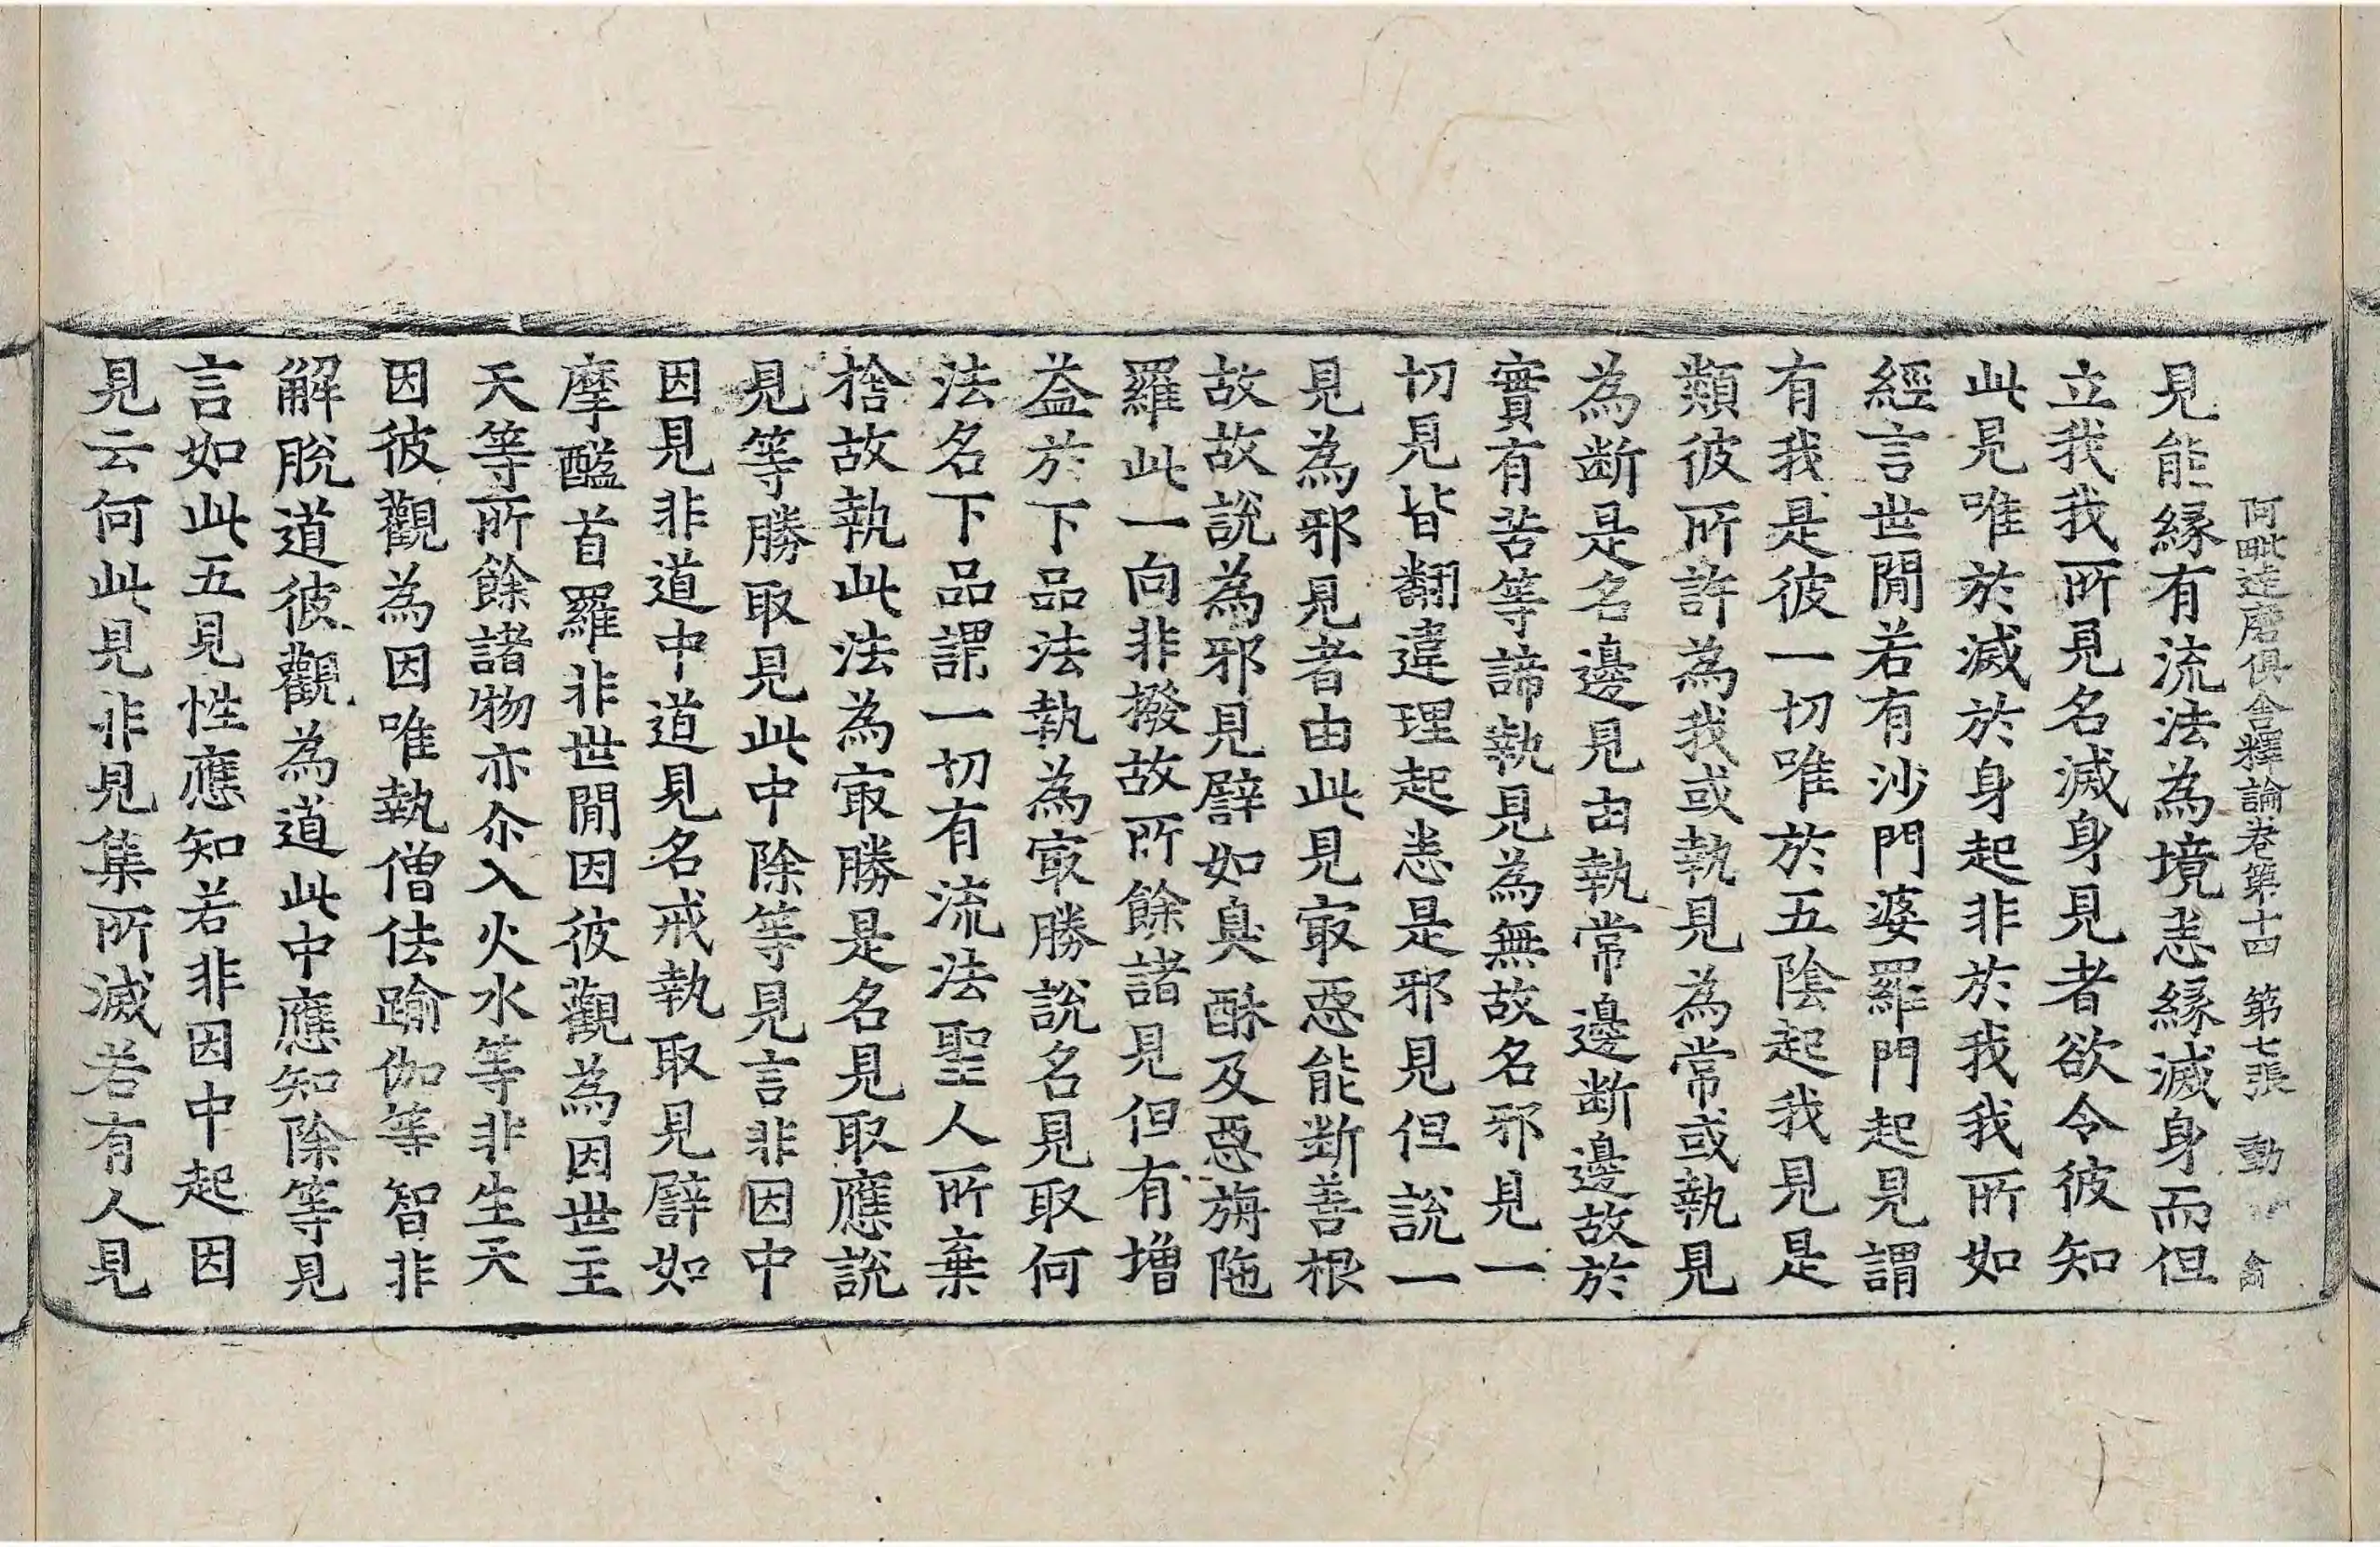 阿毗達磨俱舍釋論卷第十四　第七張　動
見能緣有流法為境恚緣滅身而但
立我我所見名滅身見者欲令彼知
此見唯於滅於身起非於我我所如
經言世間若有沙門婆羅門起見謂
有我是彼一切唯於五陰起我見是
類彼所許為我或執見為常或執見
為斷是名邊見由執常邊斷邊故於
實有苦等諦執見為無故名邪見一
切見皆翻違理起恚是邪見但說一
見為邪見者由此見㝡惡能斷善根
故故說為邪見譬如臭酥及惡旃陁
羅此一向非撥故所餘諸見但有增
益於下品法執為㝡勝說名見取何
法名下品謂一切有流法聖人所棄
捨故執此法為㝡勝是名見取應說
見等勝取見此中除等見言非因中
因見非道中道見名戒執取見譬如
摩醯首羅非世間因彼觀為因世主
天等所餘諸物亦尒入火水等非生天
因彼觀為因唯執僧佉踰伽等智非
解脫道彼觀為道此中應知除等見
言如此五見性應知若非因中起因
見云何此見非見集所滅若有人見